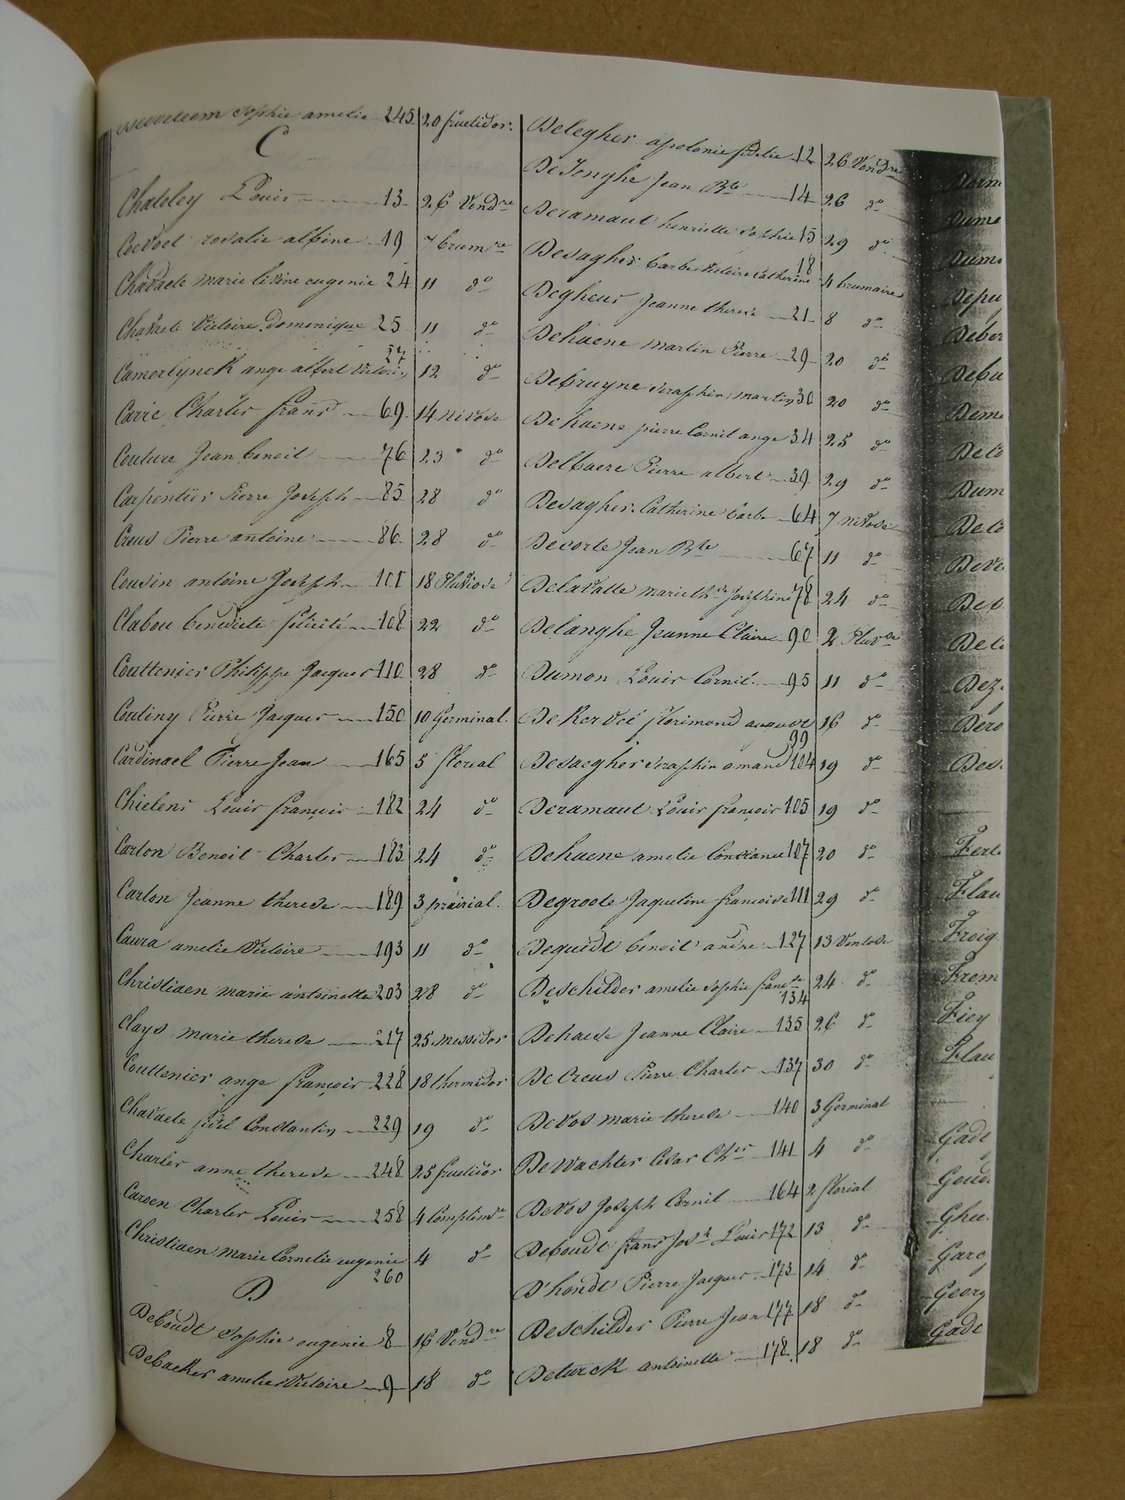 Sophie amelie 245 20 fructidor.
C
Chateley Louis 13 26 Vendre
Cocvoet rosalie alpine 19 7 brumre
Chavaete marie livine eugenie 24 11 do
Chavaete Victoire Dominique 25 11 do
Camerlynck ange albert Victoire 27 12 do
Carrie Charles frans 69 14 Nivose
Couture Jean benoit 76 23 do
Carpentier Pierre Joseph 85 28 do
Creus Pierre antoine 86 28 do
Cousin antoine Joseph 101 18 Pluviose
Clabou benedicte felicité 108 22 do
Couttenier Philippe Jacques 110 28 do
Couliny Pierre Jacques 150 10 Germinal.
Cardinael Pierre Jean 165 5 floreal
Chielens Louis françois 182 24 do
Carton Benoit Charles 183 24 do
Carton Jeanne therese 189 3 prairial.
Caura amelie Victoire 193 11 do
Christiaen marie antoinette 203 28 do
Clays marie therese 217 25 messidor
Couttenier ange françois 228 18 thermidor
Chavaete fidel Constantin 229 19 do
Charles anne therese 248 25 fructidor
Caroen Charles Louis 258 4 Complimre
Christiaen Marie Cornelie eugenie 260 4 do
D
Deboudt Sophie eugenie 8 16 Vendre
Debacker amelie Victoire 9 18 do
Delegher apolonie fidelie 12 26 Vendre
De Jonghe Jean Bte 14 26 do
Deramaut henriette Sophie 15 29 do
Desagher barbe Victoire Catherine 18 4 brumaire
Degheus Jeanne therese 21 8 do
Dehaene martin Pierre 29 20 do
Debruyne Seraphin martin 30 20 do
Dehaene pierre Cornil ange 34 25 do
Delbaere Pierre albert 39 29 do
Desagher Catherine barbe 64 7 nivose
Devorte Jean Bte 67 11 do
Delavalle marie the Josephine 78 24 do
Delanghe Jeanne Claire 90 2 Pluvse
Dumon Louis Cornil 95 11 do
Dekervel florimond auguste 99 16 do
Desaegher Seraphin amand 104 19 do
Deramaut Louis françois 105 19 do
Dehaene amelie Constance 107 20 do
Degroote Jaqueline françoise 111 29 do
Deguidt benoit andre 127 13 Ventose
Deschilder amelie Sophie franse 134 24 do
Dehaese Jeanne Claire 135 26 do
De Creus Pierre Charles 137 30 do
Devos marie therese 140 3 Germinal
Dewachter Cesar Cher 141 4 do
Devos Joseph Cornil 164 2 floreal
Deboudt frans Josh Louis 172 13 do
D'hondt Pierre Jacques 173 14 do
Deschilder Pierre Jean 177 18 do
Deturck antoinette 178 18 do
Dume
Dume
Depu
Deber
Debu
Deme
Dum
Dez
Dero
Des
Ferl
Flau
Froig
From
Ficy
Flau
Gade
Goud
Gheu
Garc
Georg
Gade